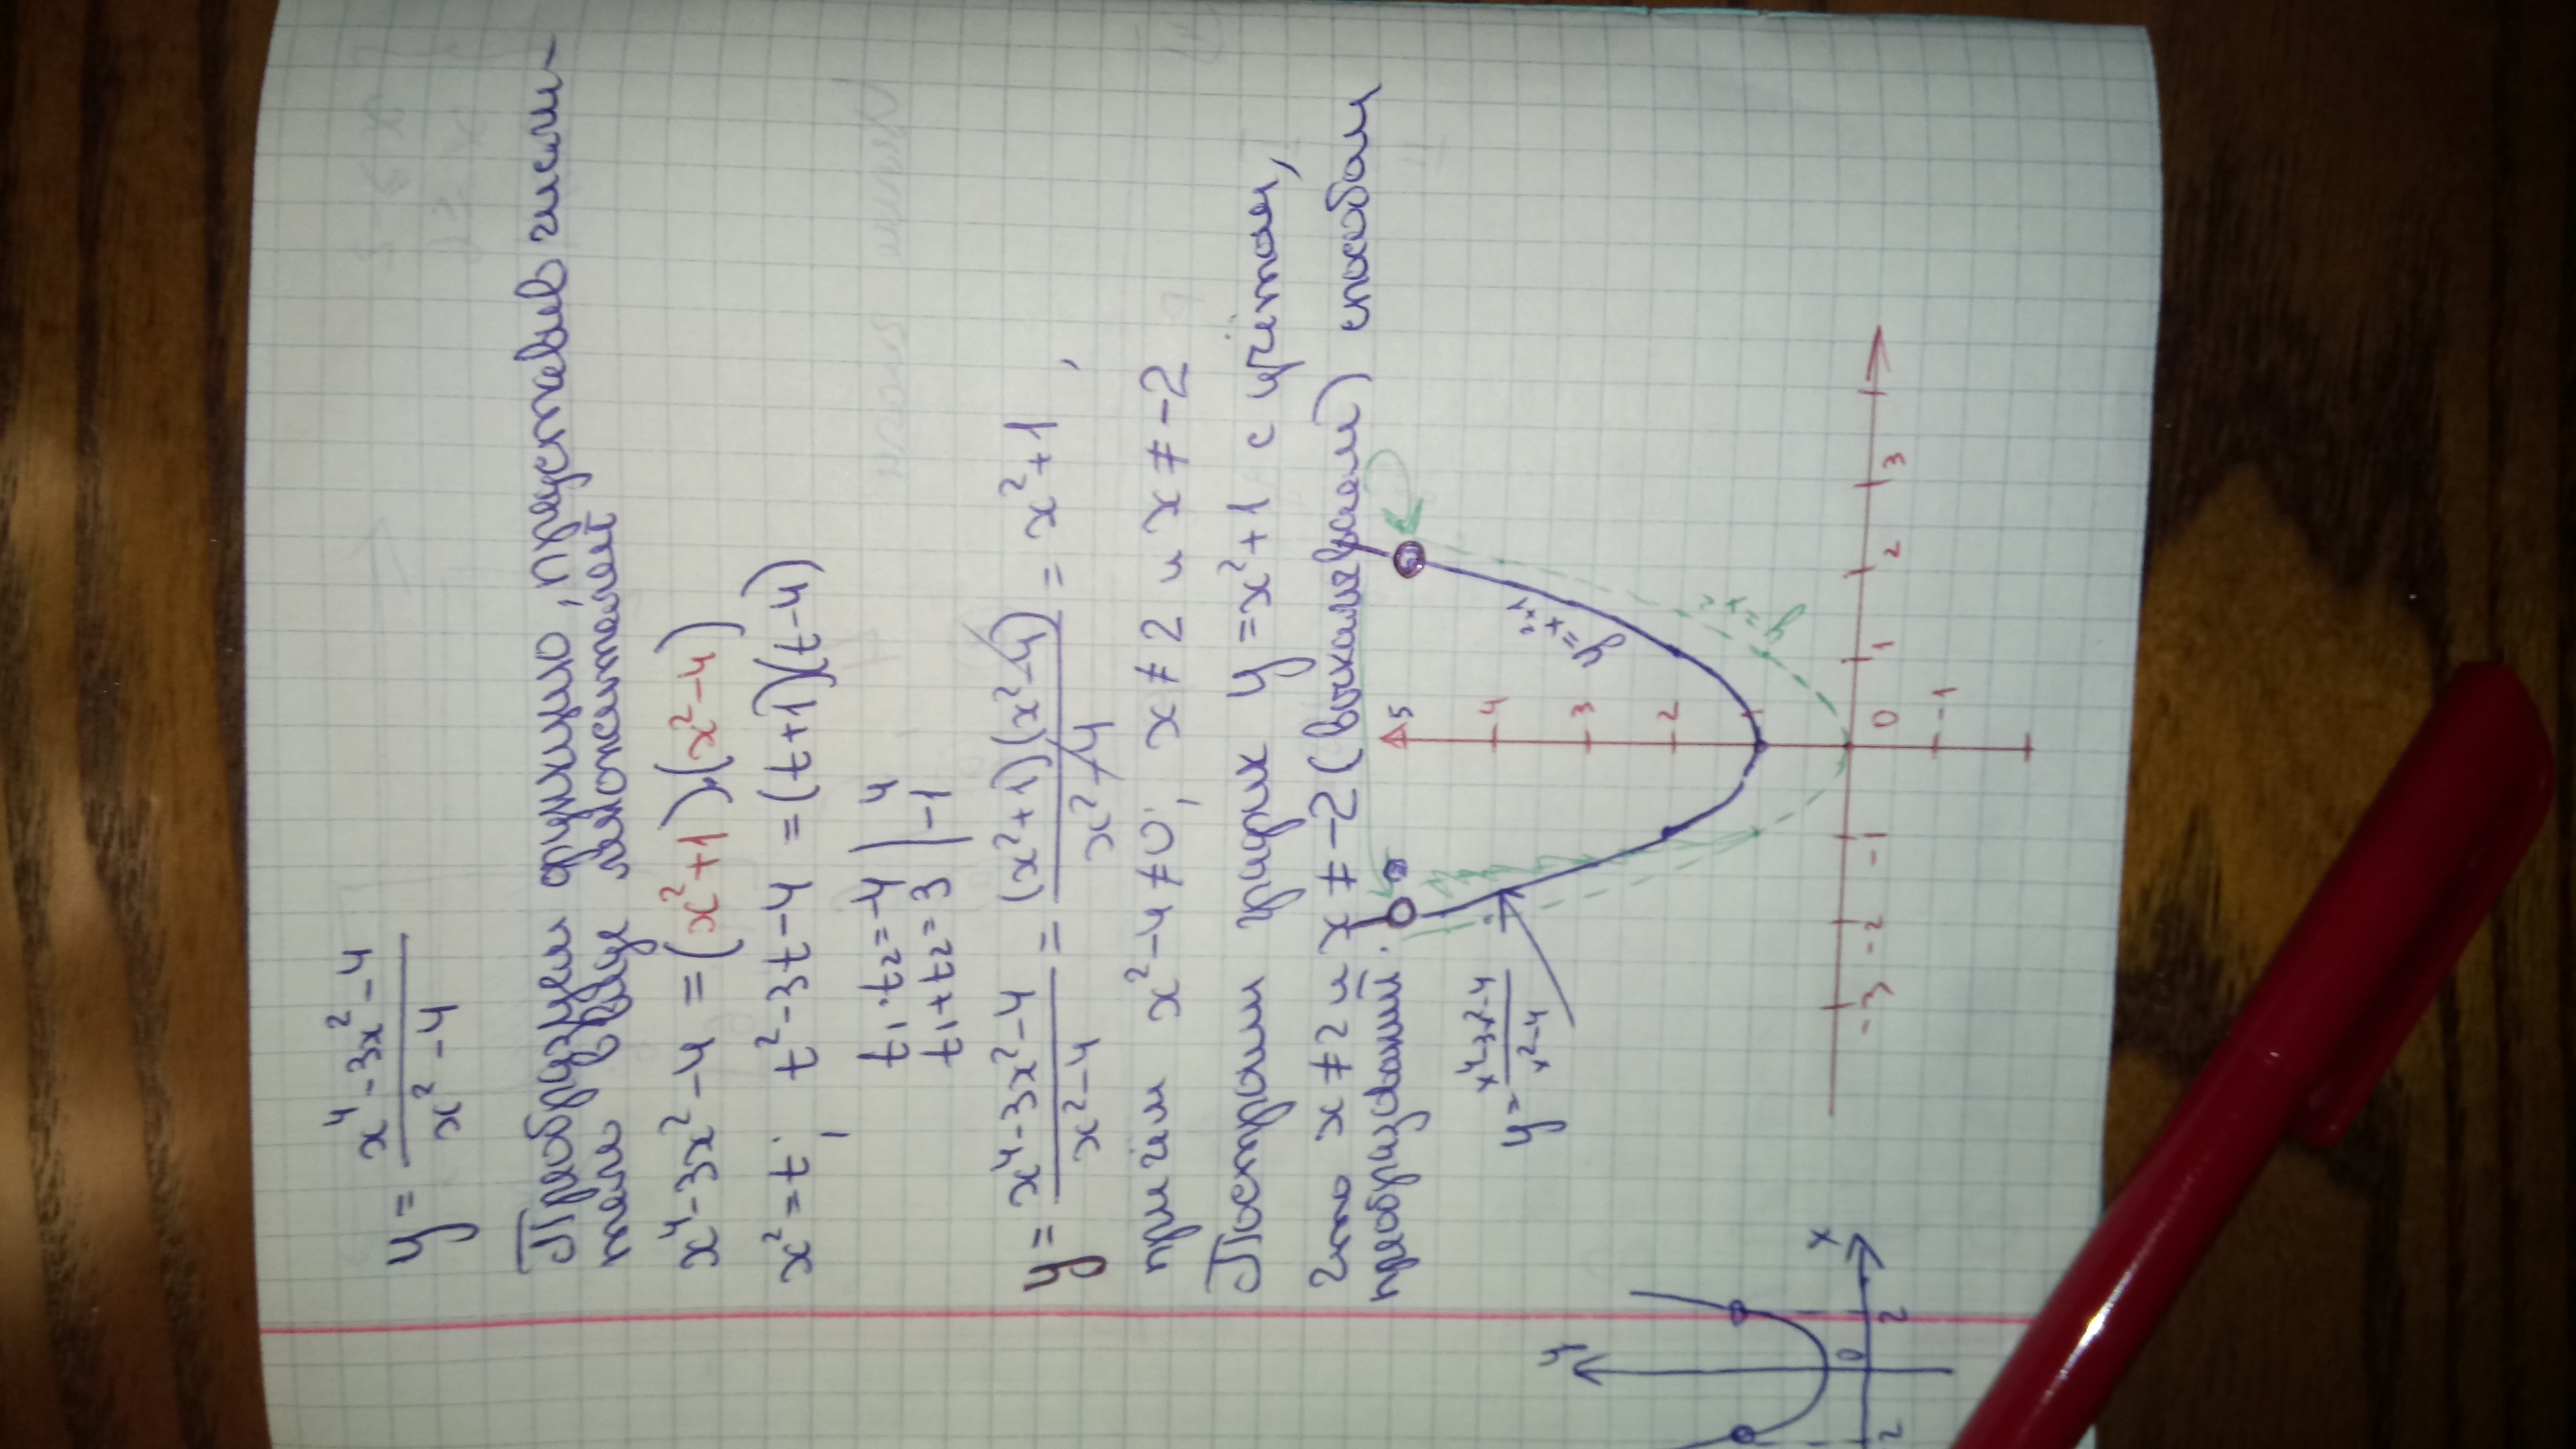 y = (x⁴ - 3x² - 4)/(x² - 4)
Преобразуем функцию, представив числи-
тель в виде множителей
x⁴ - 3x² - 4 = (x² + 1)·(x² - 4)
x² = t; t² - 3t - 4 = (t + 1)(t - 4)
t₁·t₂ = -4 | 4
t₁ + t₂ = 3 | -1
y = (x⁴ - 3x² - 4)/(x² - 4) = (x² + 1)(x² - 4)/(x² - 4) = x² + 1,
причём x² - 4 ≠ 0; x ≠ 2 и x ≠ -2
Построим график y = x² + 1 с учётом,
что x ≠ 2 и x ≠ -2 (выкалываем) способом
преобразований.
y = (x⁴ - 3x² - 4)/(x² - 4)
y = x² + 1
y = x²
5
4
3
2
1
-3 -2 -1 0 1 2 3
-1
y
x
2 0 2